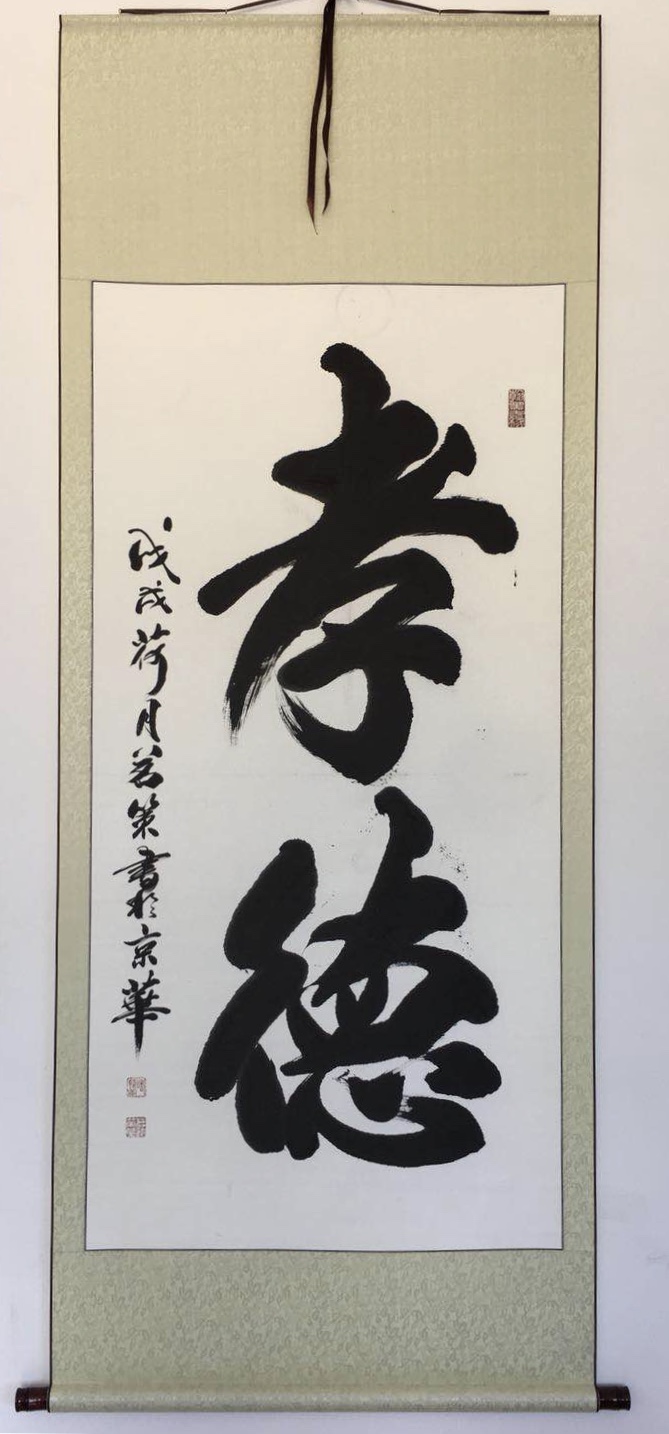 孝德
戊戌荷月茗策書於京華